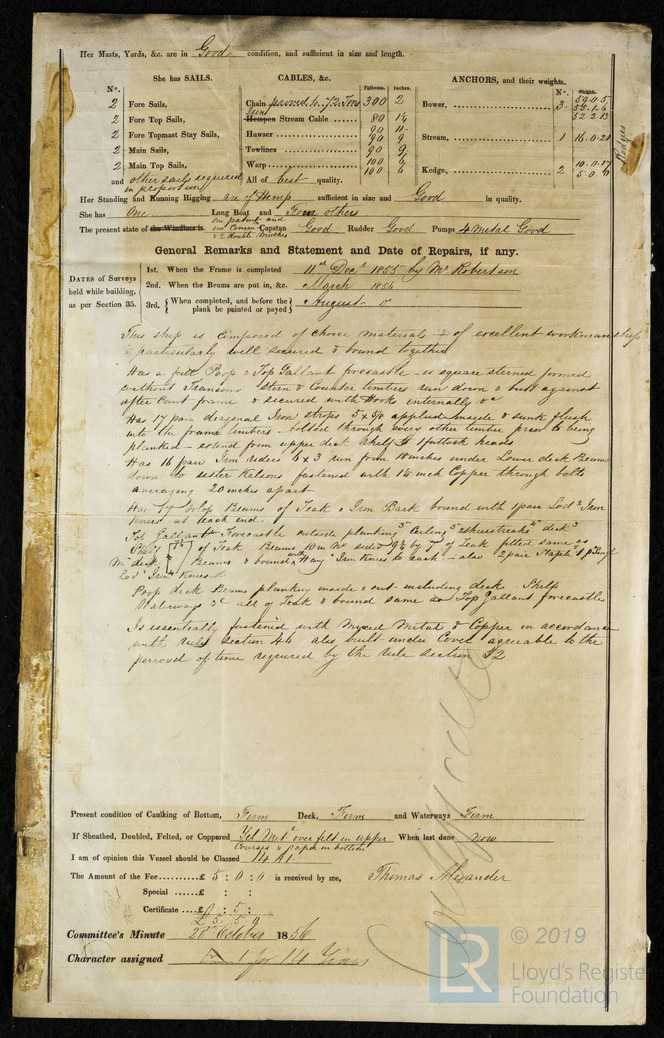 Her Masts, Yards, &c. are in Good condition, and sufficient in size and length.
She has SAILS.
CABLES, &c.
Fathoms.
Inches.
ANCHORS, and their weights.
N°.
N°.
Weight.
2 Fore Sails,
Chain proved to 72 Tons 300 2
Bower, 3 59.0.5
58.1.6
52.2.13
2 Fore Top Sails,
Hempen Stream Cable 80 1¼
2 Fore Topmast Stay Sails,
Hawser 90 11
Stream, 1 16.0.21
Rodgers
2 Main Sails,
Towlines 90 9
2 Main Top Sails,
Warp 100 6
Kedge, 2 10.0.17
5.0.0
and other sails required in proportion
All of best quality.
Her Standing and Running Rigging are of Hemp sufficient in size and Good in quality.
She has One Long Boat and Four others
The present state of the Windlass is one patent and one Common Capstan Good Rudder Good Pumps 4 metal Good
& 2 double Winches
General Remarks and Statement and Date of Repairs, if any.
DATES of Surveys held while building, as per Section 35.
1st. When the Frame is completed 11th Decr 1855 by Mr Robertson
2nd. When the Beams are put in, &c. March 1856
3rd. When completed, and before the plank be painted or payed August Do
This ship is composed of choice materials & of excellent workmanship
& particularly well secured & bound together
Has a full Poop & Top Gallant forecastle is square sterned formed
without Transoms Stern & Counter timbers run down & butt against
after Cant frame & secured with Hooks internally &c
Has 17 pair diagonal Iron straps 5 x ⅝ applied Inside & sunk flush
into the frame timbers - bolted through every other timber prior to being
planked - extend from upper deck shelf to futtock heads
Has 16 pair Iron riders 6 x 3 run from 18 inches under Lower deck Beam
down to sister Kelsons fastened with 1⅛ inch Copper through bolts
averaging 20 inches apart
Has 17 Orlop Beams of Teak & Iron Bark bound with 1 pair Lodg Iron
Knees at each end.
Top Gallant Forecastle outside planking 3" Ceiling 3" deck 3"
Shelf of Teak Beams 10 in No sided 9½ by 7 of Teak fitted same as
Mn deck Beams & bound with Hang Iron Knees to each - also 2 pair Staple & 1 pr
Lodg Iron Knees
Poop deck Beams planking inside & out including deck Shelf
Waterways &c all of Teak & bound same as Top Gallant forecastle
Is essentially fastened with Mixed Metal & Copper in accordance
with rule Section 46 also built under Cover agreeable to the
period of time required by the rule section 52
Present condition of Caulking of Bottom, Firm Deck, Firm and Waterways Firm
If Sheathed, Doubled, Felted, or Coppered Yel Metl over felt in upper When last done now
Courses & paper on bottom
I am of opinion this Vessel should be Classed 14 A1
The Amount of the Fee £ 5 : 0 : 0 is received by me, Thomas Alexander
Special £ : :
Certificate £ 0 : 5 :
£5.5.0
Committee's Minute 21st October 1856
Character assigned A 1 for 14 Years
LR
© 2019
Lloyd's Register
Foundation